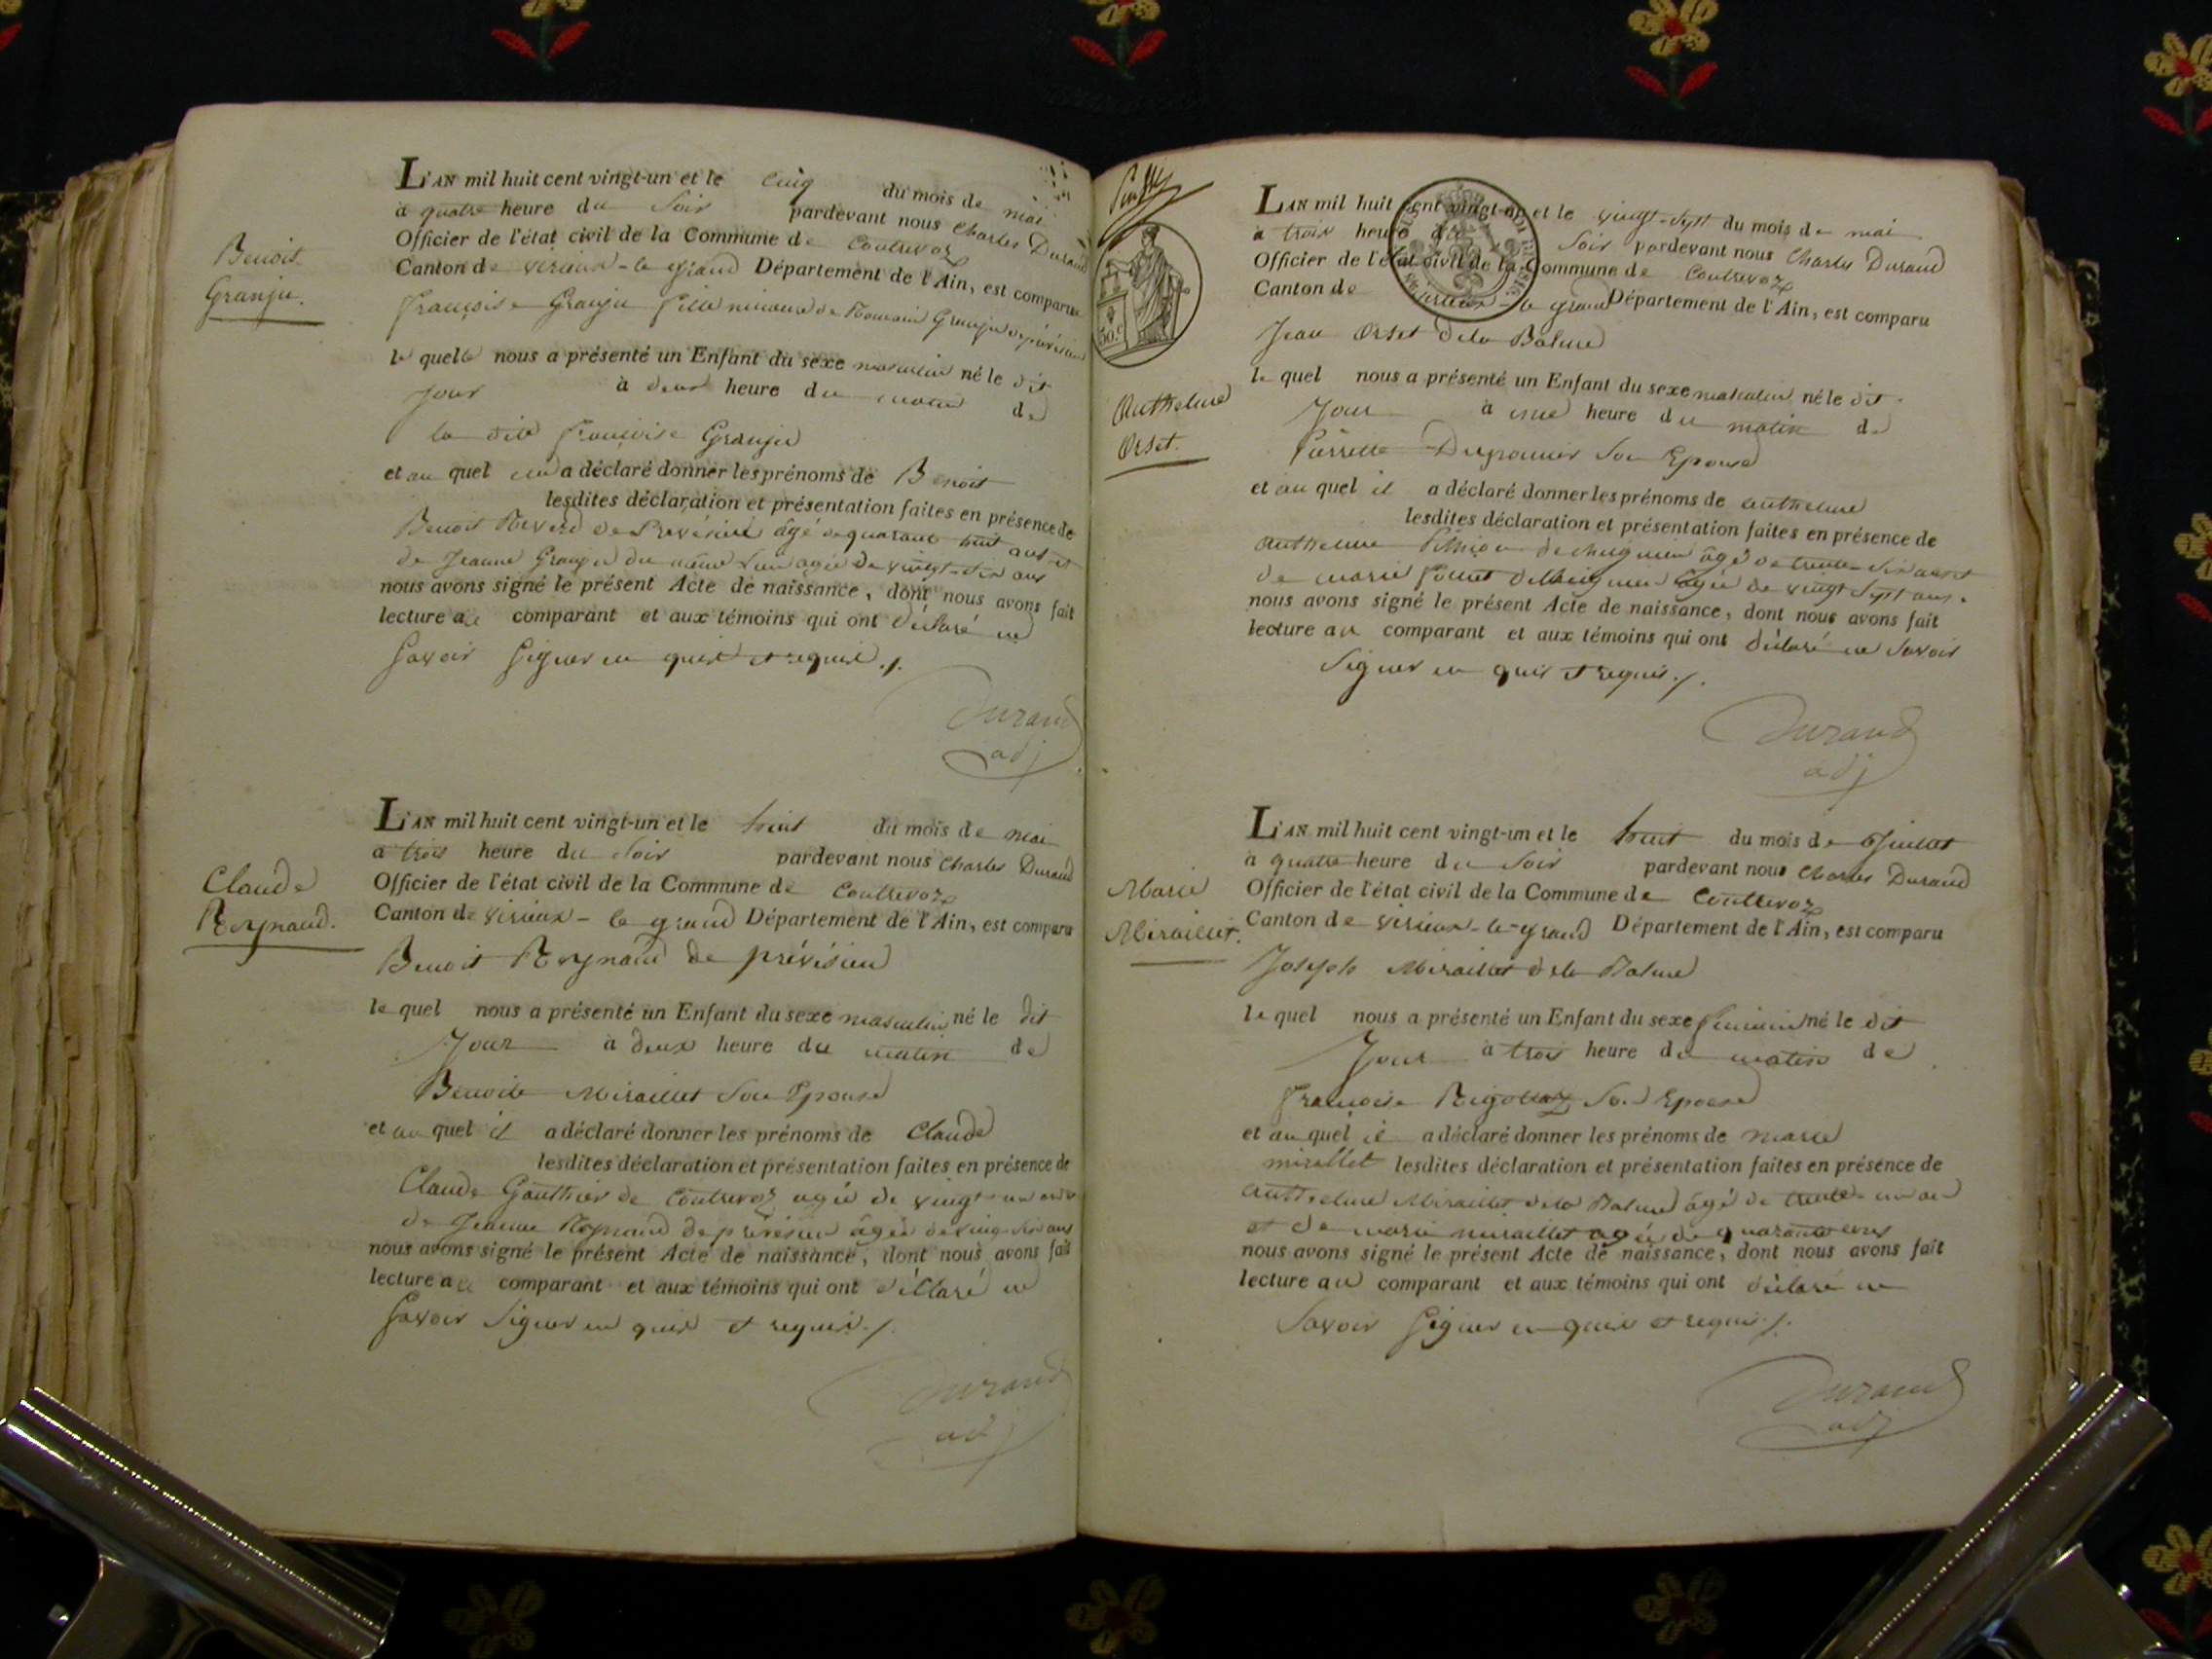 Benoit
Granju.
L'AN mil huit cent vingt-un et le cinq du mois de mai
à quatre heure du Soir pardevant nous Charles Durand
Officier de l'état civil de la Commune de Contrevoz
Canton de virieux-le grand Département de l'Ain, est comparue
françoise Granju fille mineure de Romain Granju de prévésieu
le quelle nous a présenté un Enfant du sexe masculin né le dit
jour à deux heure du matin de
la dite françoise Granju
et au quel a déclaré donner les prénoms de Benoit
lesdites déclaration et présentation faites en présence de
Benoit de Prevésieu âgé de quarante huit ans et
de Jeanne Granju du même lieu agée de vingt-six ans
nous avons signé le présent Acte de naissance, dont nous avons fait
lecture au comparant et aux témoins qui ont déclaré ne
Savoir Signer en quis et requis ./.
Durand
adj
Claude
Reynaud.
L'AN mil huit cent vingt-un et le huit du mois de mai
a trois heure du Soir pardevant nous Charles Durand
Officier de l'état civil de la Commune de Contrevoz
Canton de virieux-le grand Département de l'Ain, est comparu
Benoit Reynaud de prévésieu
le quel nous a présenté un Enfant du sexe masculin né le dit
Jour à deux heure du matin de
Benoite Miraillet Son Epouse
et au quel il a déclaré donner les prénoms de Claude
lesdites déclaration et présentation faites en présence de
Claude Gauthier de Contrevoz agé de vingt-un ans
de Jeanne Reynaud de prévésieu âgée de ans
nous avons signé le présent Acte de naissance, dont nous avons fait
lecture au comparant et aux témoins qui ont déclaré ne
Savoir Signer en quis et requis ./.
Durand
adj
50.c
Anthelme
Orset.
L'AN mil huit cent vingt-un et le vingt-sept du mois de mai
à trois heure du Soir pardevant nous Charles Durand
Officier de l'état civil de la Commune de Contrevoz
Canton de virieux-le grand Département de l'Ain, est comparu
Jean Orset de la Balme
le quel nous a présenté un Enfant du sexe masculin né le dit
Jour à une heure du matin de
Pierrette Duponnier Son Epouse
et au quel il a déclaré donner les prénoms de anthelme
lesdites déclaration et présentation faites en présence de
anthelme de âgé de trente-six ans et
de marie de agée de vingt sept ans.
nous avons signé le présent Acte de naissance, dont nous avons fait
lecture au comparant et aux témoins qui ont déclaré ne Savoir
Signer en quis et requis ./.
Durand
adj
Marie
Miraillet.
L'AN mil huit cent vingt-un et le huit du mois de Juillet
à quatre heure du Soir pardevant nous Charles Durand
Officier de l'état civil de la Commune de Contrevoz
Canton de virieux-le-grand Département de l'Ain, est comparu
Joseph Miraillet de la Balme
le quel nous a présenté un Enfant du sexe feminin né le dit
Jour à trois heure du matin de
françoise Rigollaz Son Epouse
et au quel il a déclaré donner les prénoms de marie
mirallet lesdites déclaration et présentation faites en présence de
anthelme Miraillet de la Balme âgé de trente-un an
et de marie miraillet agée de quarante ans
nous avons signé le présent Acte de naissance, dont nous avons fait
lecture au comparant et aux témoins qui ont déclaré ne
Savoir Signer en quis et requis ./.
Durand
adj